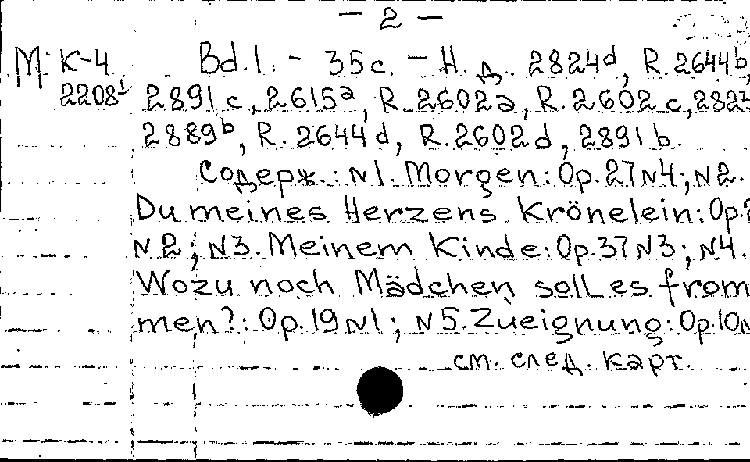 — 2 —
М К-4 Bd. I. - 35 с. - Н. д. 2824d, R. 2644b,
2208¹ 2891c, 2615a, R. 2602a, R. 2602c, 282
2889b, R. 2644d, R. 2602d, 2891b.
Содерж.: N1. Morgen: Op. 27 N4; N2.
Du meines Herzens Krönelein: Op.
N2; N3. Meinem Kinde: Op. 37 N3; N4.
Wozu noch Mädchen soll es from
men?: Op. 19 N1; N5. Zueignung: Op. 10
см. след. карт.